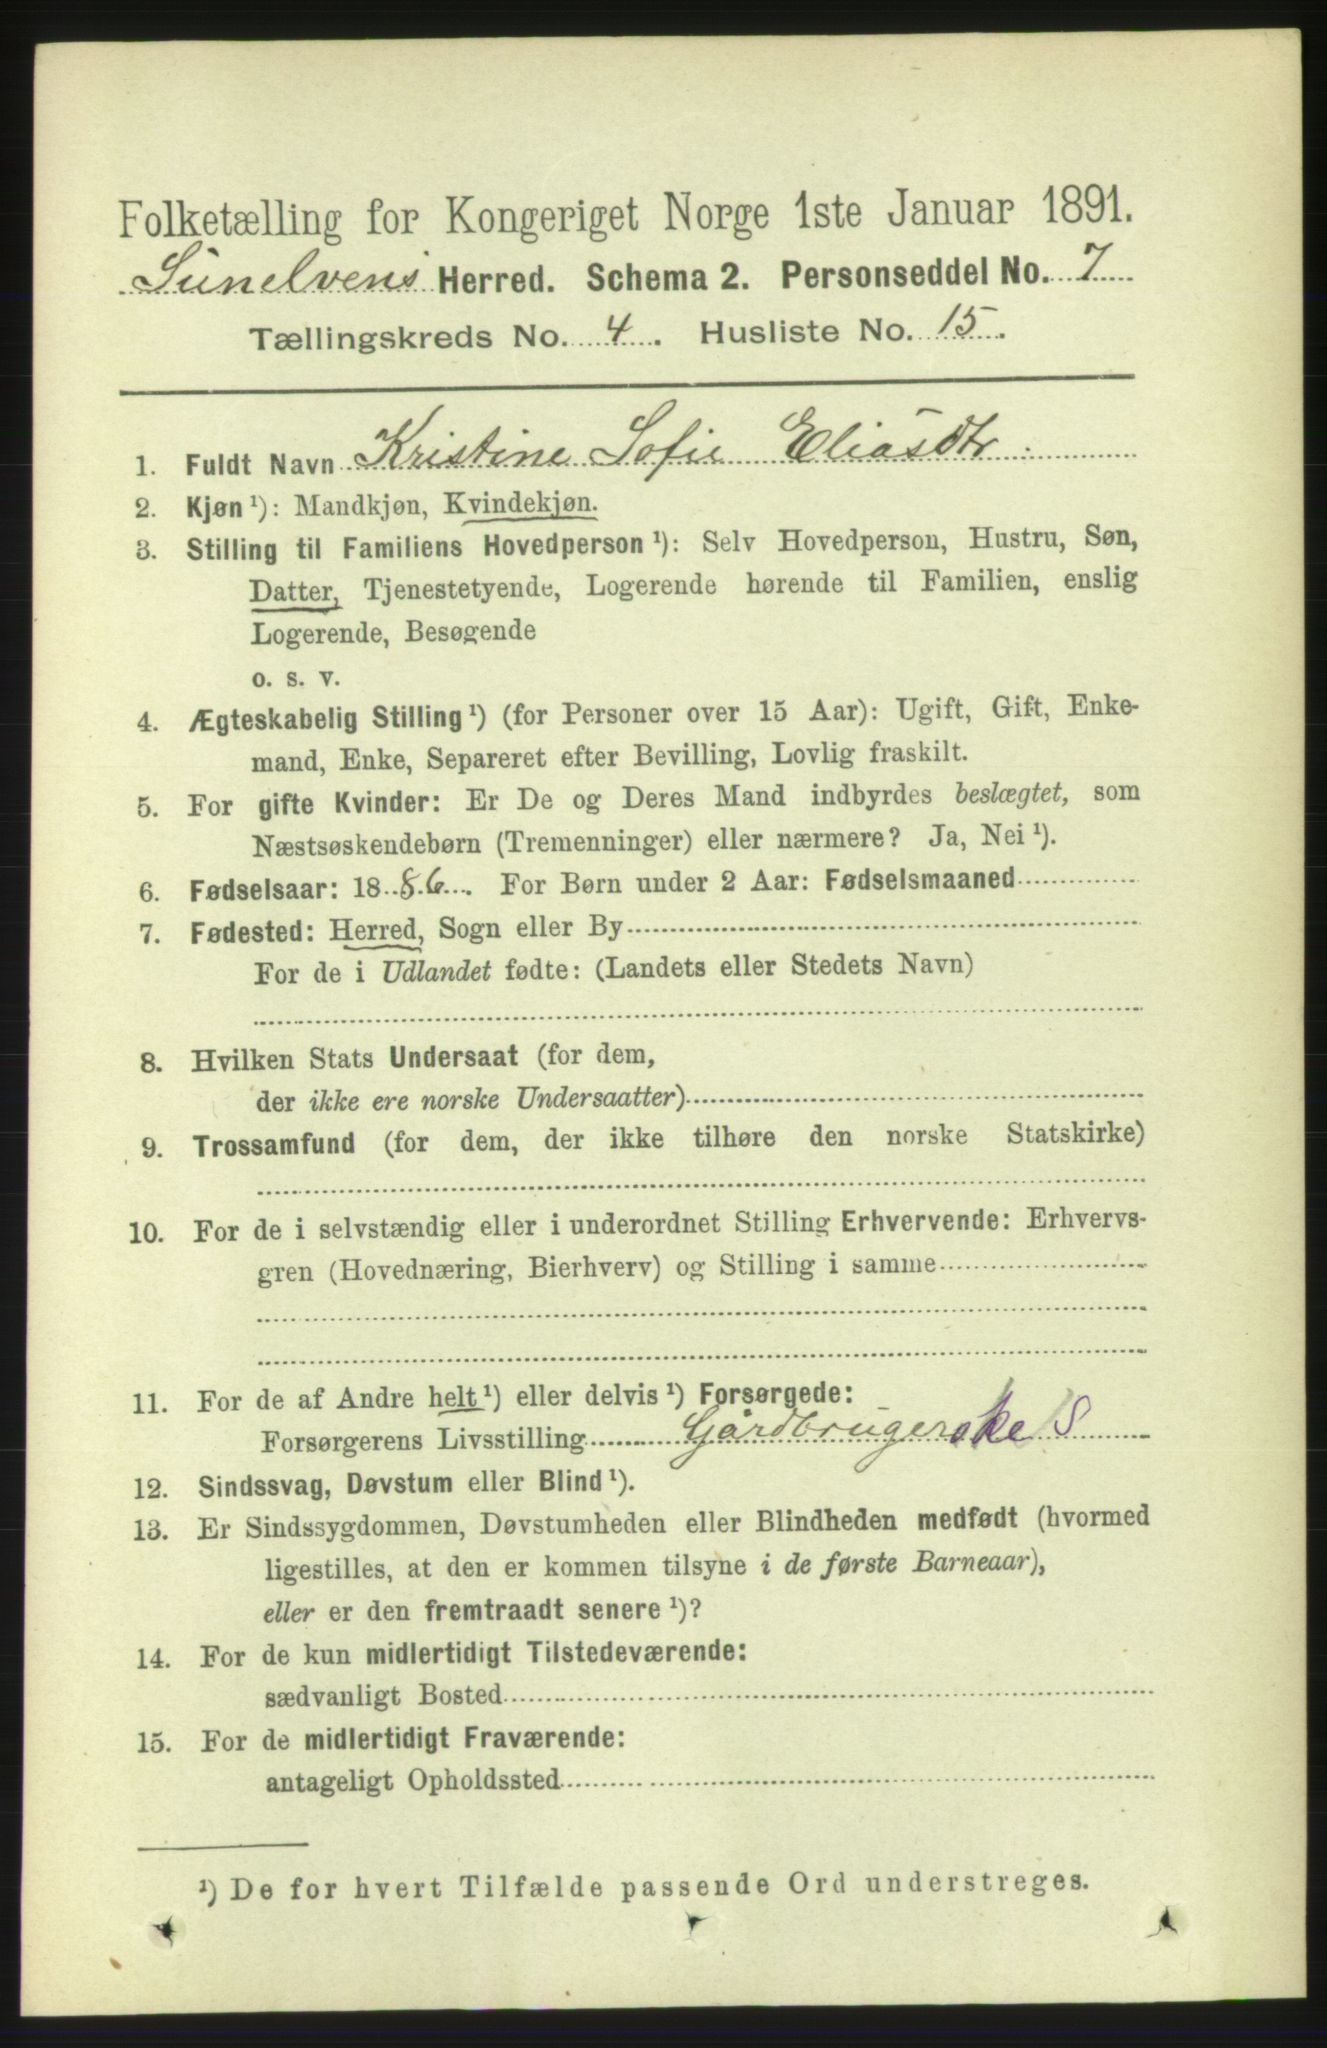 Folketælling for Kongeriget Norge 1ste Januar 1891.
Sunelvens Herred. Schema 2. Personseddel No. 7
Tællingskreds No. 4. Husliste No. 15.
1. Fuldt Navn Kristine Sofie Eliasdtr.
2. Kjøn ¹): Mandkjøn, Kvindekjøn.
3. Stilling til Familiens Hovedperson ¹): Selv Hovedperson, Hustru, Søn,
Datter, Tjenestetyende, Logerende hørende til Familien, enslig
Logerende, Besøgende
o. s. v.
4. Ægteskabelig Stilling ¹) (for Personer over 15 Aar): Ugift, Gift, Enke-
mand, Enke, Separeret efter Bevilling, Lovlig fraskilt.
5. For gifte Kvinder: Er De og Deres Mand indbyrdes beslægtet, som
Næstsøskendebørn (Tremenninger) eller nærmere? Ja, Nei ¹).
6. Fødselsaar: 1886. For Børn under 2 Aar: Fødselsmaaned
7. Fødested: Herred, Sogn eller By
For de i Udlandet fødte: (Landets eller Stedets Navn)
8. Hvilken Stats Undersaat (for dem,
der ikke ere norske Undersaatter)
9. Trossamfund (for dem, der ikke tilhøre den norske Statskirke)
10. For de i selvstændig eller i underordnet Stilling Erhvervende: Erhvervs-
gren (Hovednæring, Bierhverv) og Stilling i samme
11. For de af Andre helt ¹) eller delvis ¹) Forsørgede:
Forsørgerens Livsstilling Gårdbrugerske S
12. Sindssvag, Døvstum eller Blind ¹).
13. Er Sindssygdommen, Døvstumheden eller Blindheden medfødt (hvormed
ligestilles, at den er kommen tilsyne i de første Barneaar),
eller er den fremtraadt senere ¹)?
14. For de kun midlertidigt Tilstedeværende:
sædvanligt Bosted
15. For de midlertidigt Fraværende:
antageligt Opholdssted
¹) De for hvert Tilfælde passende Ord understreges.